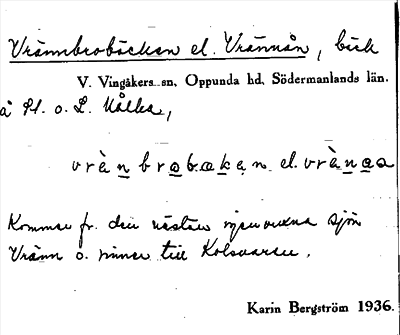 Vrännbrobäcken el. Vrännån, bäck
V. Vingåkers sn, Oppunda hd, Södermanlands län.
å St. o. L. Kålka,
vrà̀n brobäkən el. vrànåa
Kommer fr. den nästan igenvuxna sjön
Vränn o. rinner till Kolsnaren.
Karin Bergström 1936.